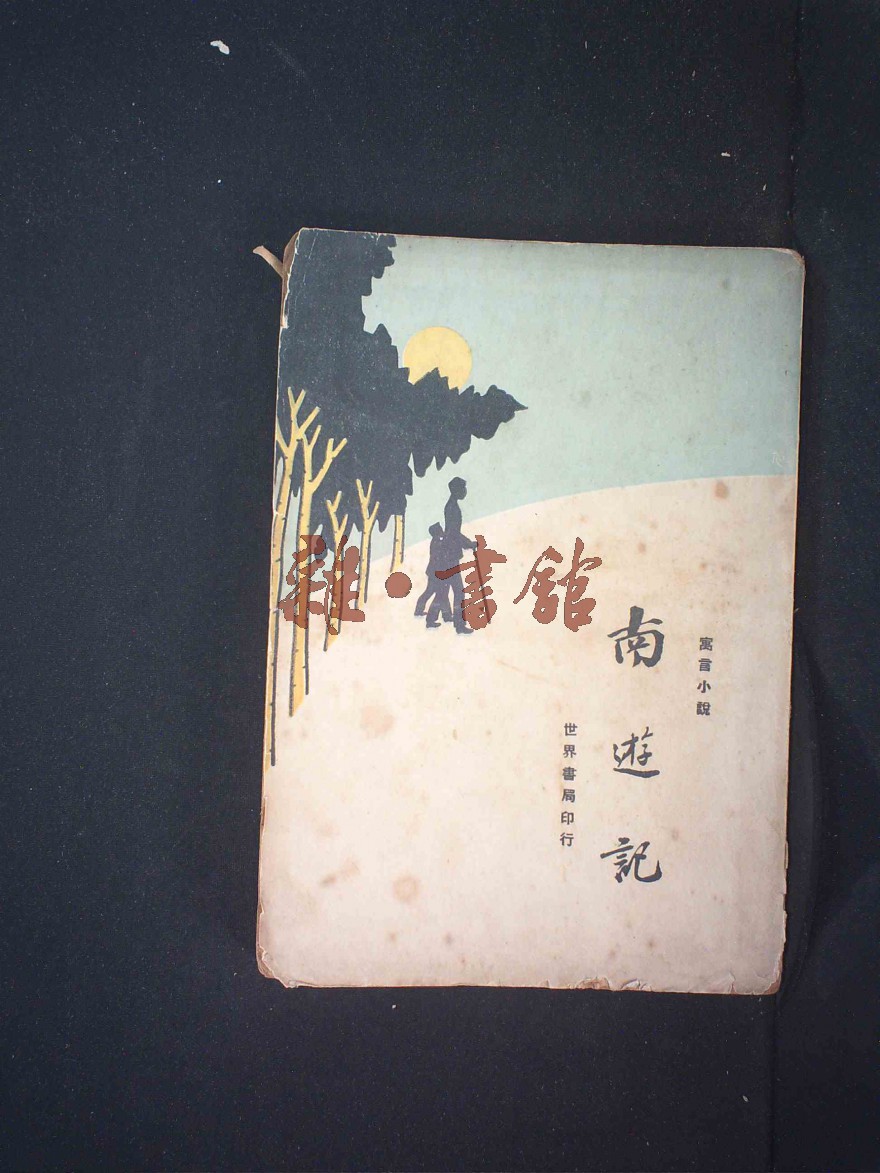 寓言小說
南遊記
世界書局印行
雜·書館